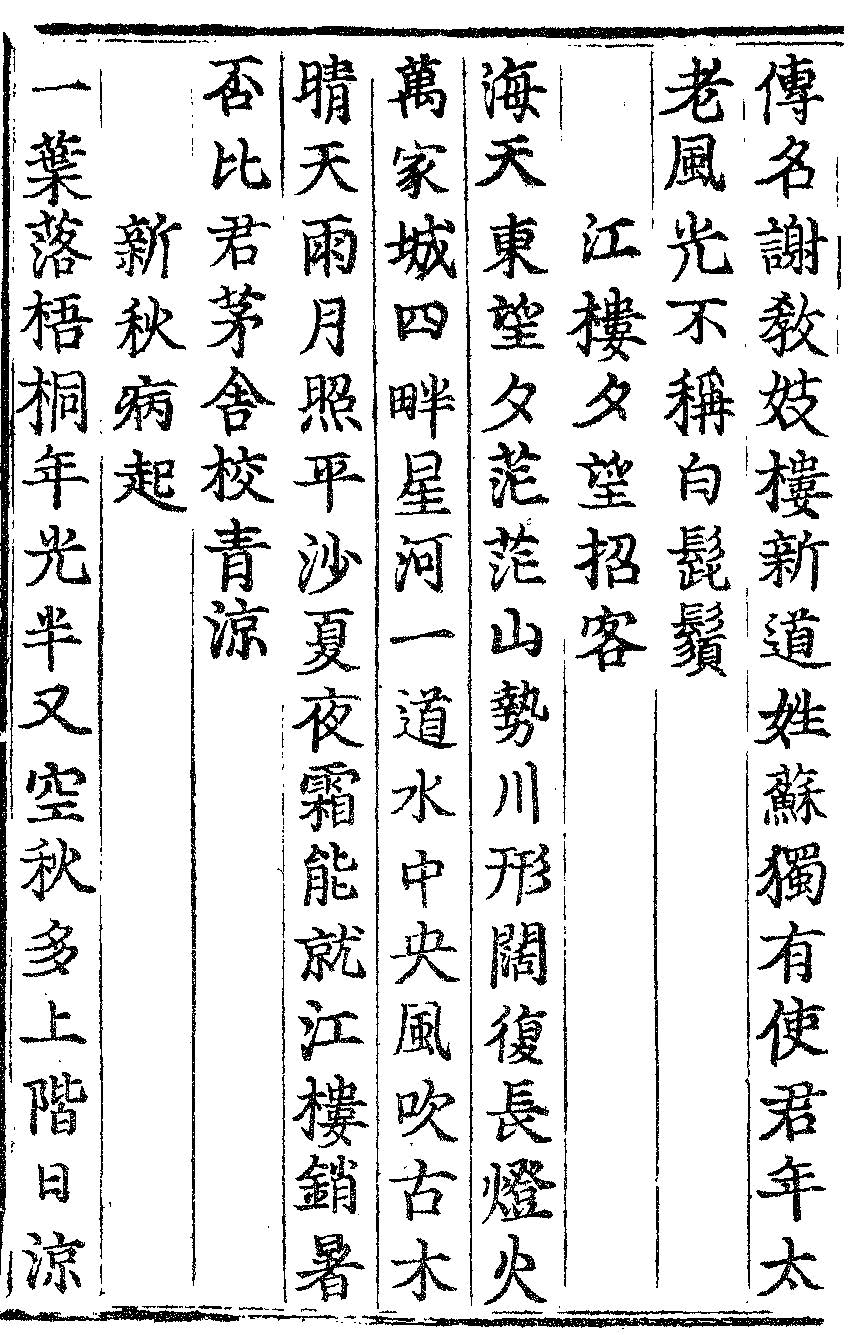 傳名謝教妓樓新道姓蘇獨有使君年太
老風光不稱白髭鬚
江樓夕望招客
海天東望夕茫茫山勢川形闊復長燈火
萬家城四畔星河一道水中央風吹古木
晴天雨月照平沙夏夜霜能就江樓銷暑
否比君茅舍校青涼
新秋病起
一葉落梧桐年光半又空秋多上階日涼